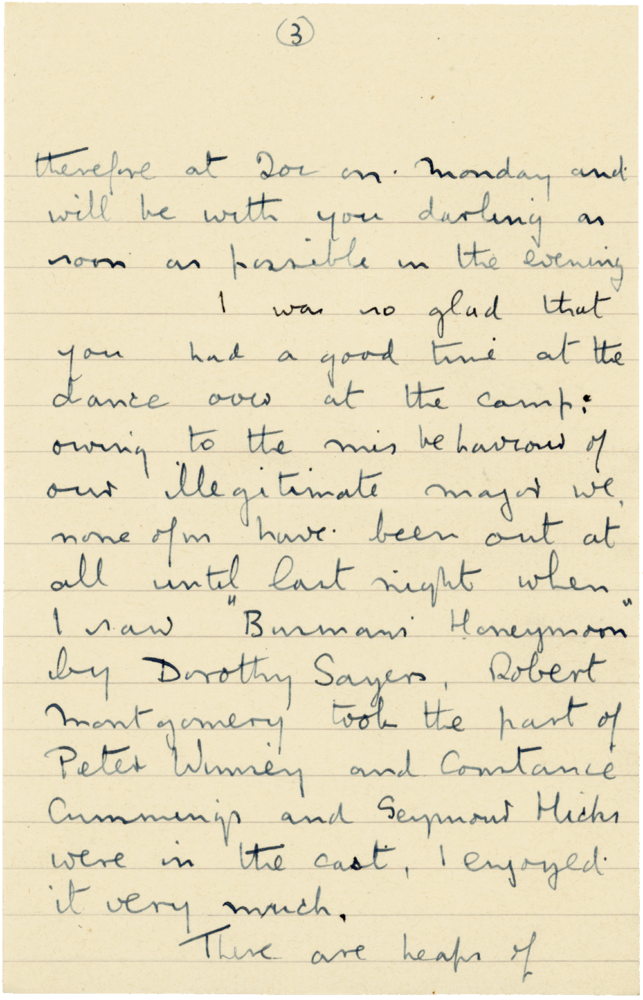 3
therefore at Joe on Monday and
will be with you darling as
soon as possible in the evening
I was so glad that
you had a good time at the
dance over at the camp:
owing to the mis behaviour of
our illegitimate major we,
none of us have been out at
all until last night when
I saw "Busmans Honeymoon"
by Dorothy Sayers, Robert
Montgomery took the part of
Peter Wimsey and Constance
Cummings and Seymour Hicks
were in the cast, I enjoyed
it very much.
There are heaps of